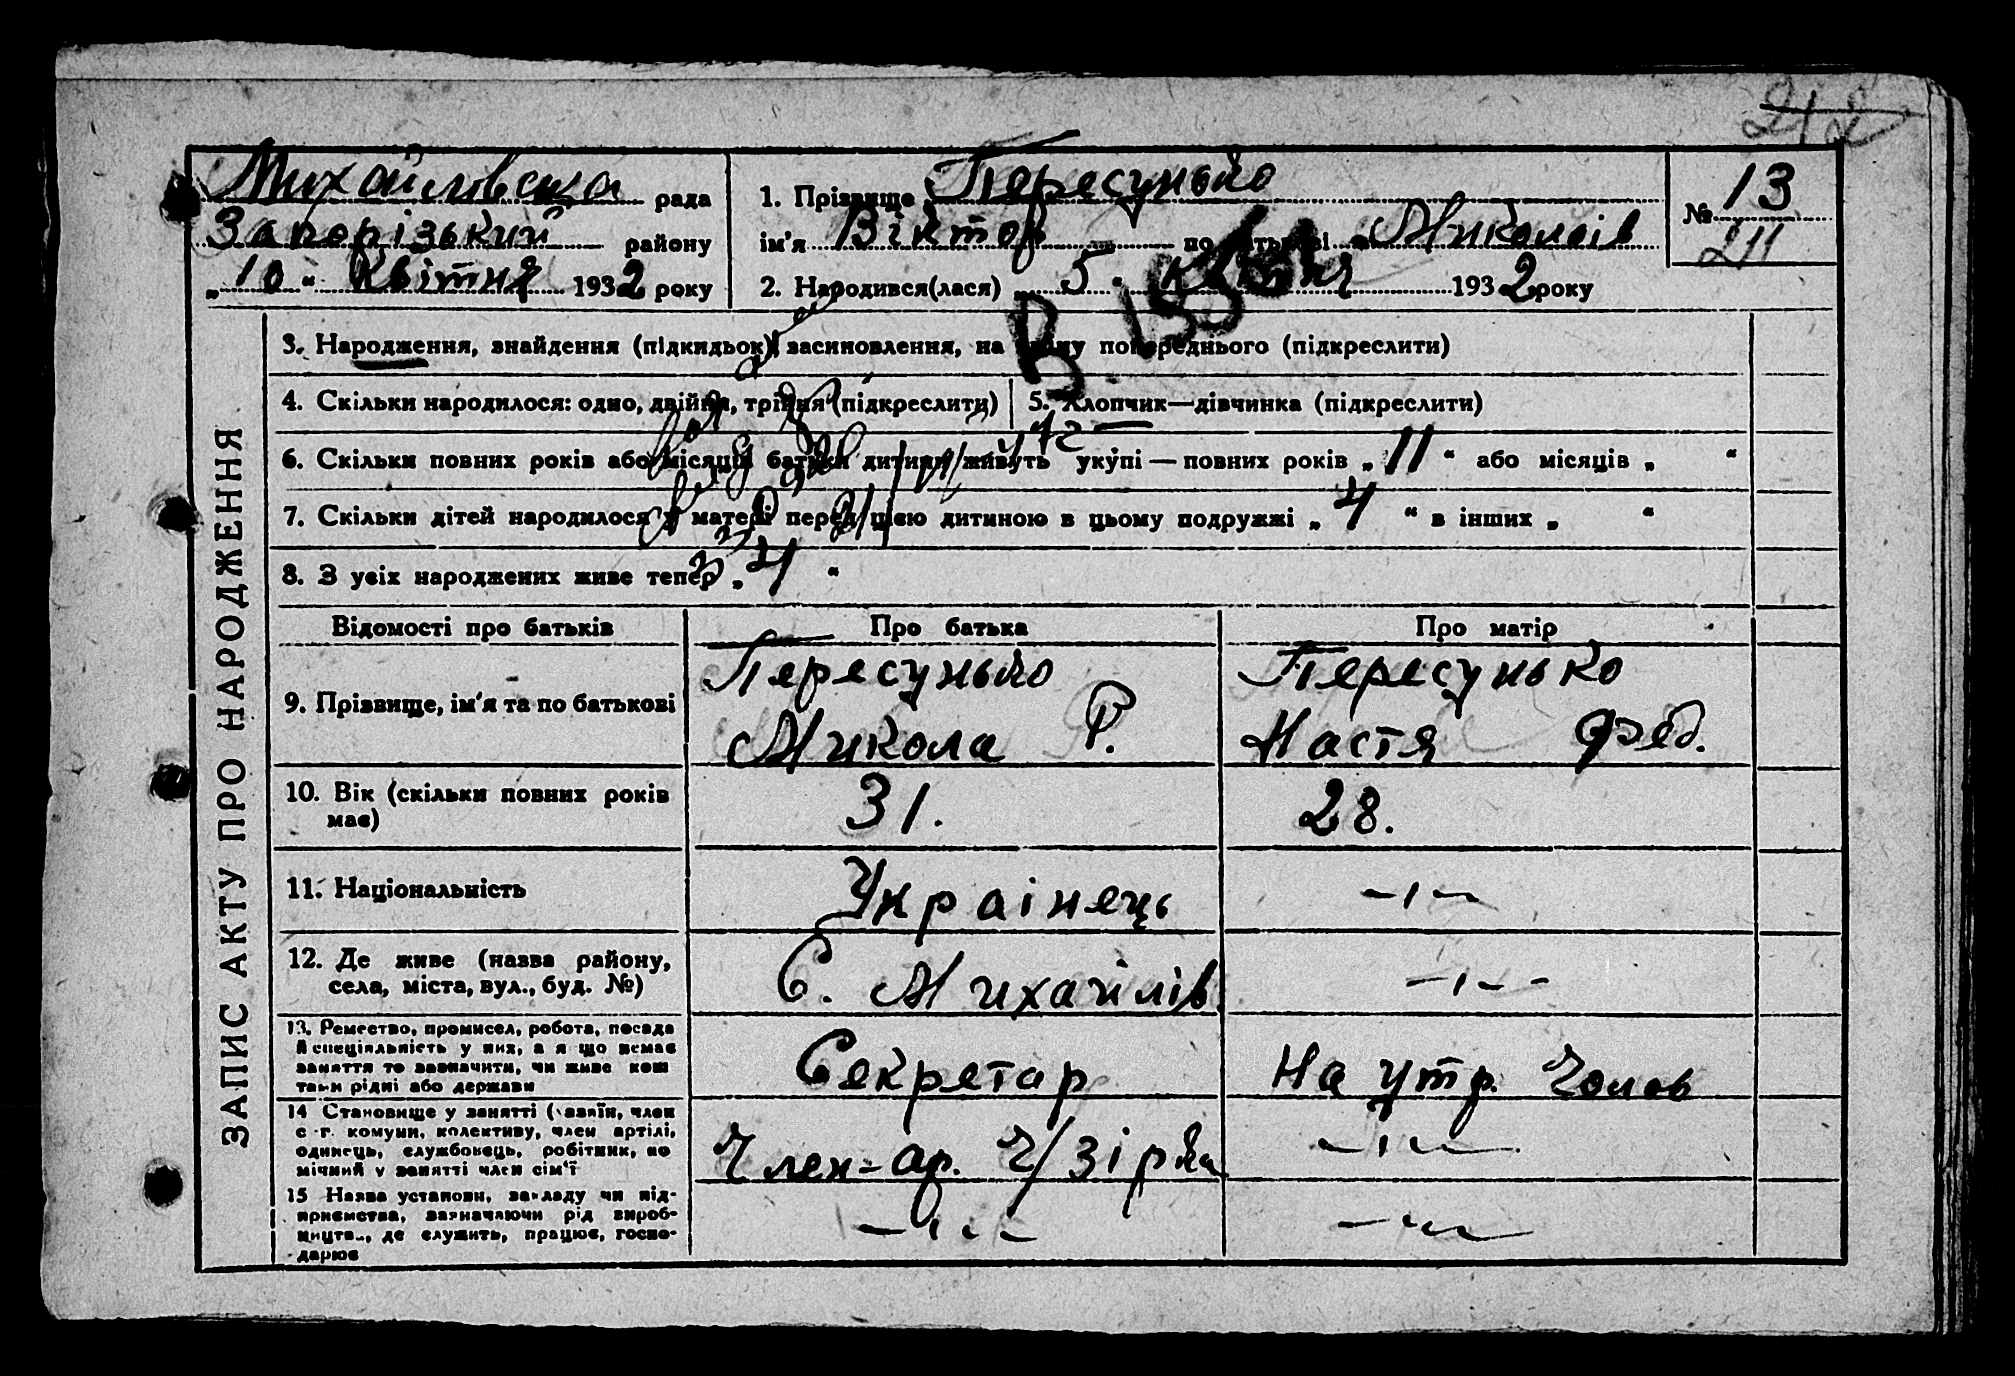 212
Михайловська рада
Запорізький району
„10“ Квітня 1932 року
1. Прізвище Пересунько
ім'я Віктор по батькові Миколаїв
2. Народився(лася) „5“ Квітня 1932 року
№ 13
211
ЗАПИС АКТУ ПРО НАРОДЖЕННЯ
3. Народження, знайдення (підкидьок), засиновлення, на зміну попереднього (підкреслити)
4. Скільки народилося: одно, двійня, трійня (підкреслити)
5. Хлопчик—дівчинка (підкреслити)
6. Скільки повних років або місяців батьки дитини живуть укупі — повних років „11“ або місяців „ “
7. Скільки дітей народилося у матері перед цією дитиною в цьому подружжі „4“ в інших „ “
8. З усіх народжених живе тепер „4“
Відомості про батьків Про батька Про матір
9. Прізвище, ім'я та по батькові
Пересунько
Микола Р.
Пересунько
Настя Фед.
10. Вік (скільки повних років
має)
31.
28.
11. Національність
Українець
—ı—
12. Де живе (назва району,
села, міста, вул., буд. №)
С. Михайлів.
—ı—
13. Ремество, промисел, робота, посада
й спеціяльність у них, а я що немає
заняття то зазначити, чи живе кош
тами рідні або держави
Секретар
На утр. Чолов
14 Становище у занятті (хазяїн, член
с.-г. комуни, колективу, член артілі,
одинець, службовець, робітник, по
мічний у занятті член сім'ї
Член-ар. Ч/Зірка
—ı—
15 Назва установи, закладу чи під-
приємства, зазначаючи рід вироб-
ництв.., де служить, працює, госпо-
дарює
—ı—
—ı—